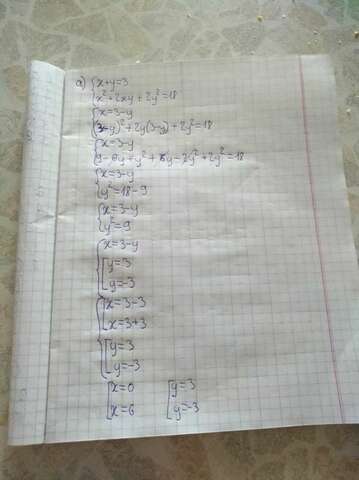 а) {x+y=3
x²+2xy+2y²=18
{x=3-y
(3-y)²+2y(3-y)+2y²=18
{x=3-y
9-6y+y²+6y-2y²+2y²=18
{x=3-y
y²=18-9
{x=3-y
y²=9
{x=3-y
[y=3
y=-3
{[x=3-3
x=3+3
{[y=3
y=-3
[x=0 [y=3
x=6 y=-3